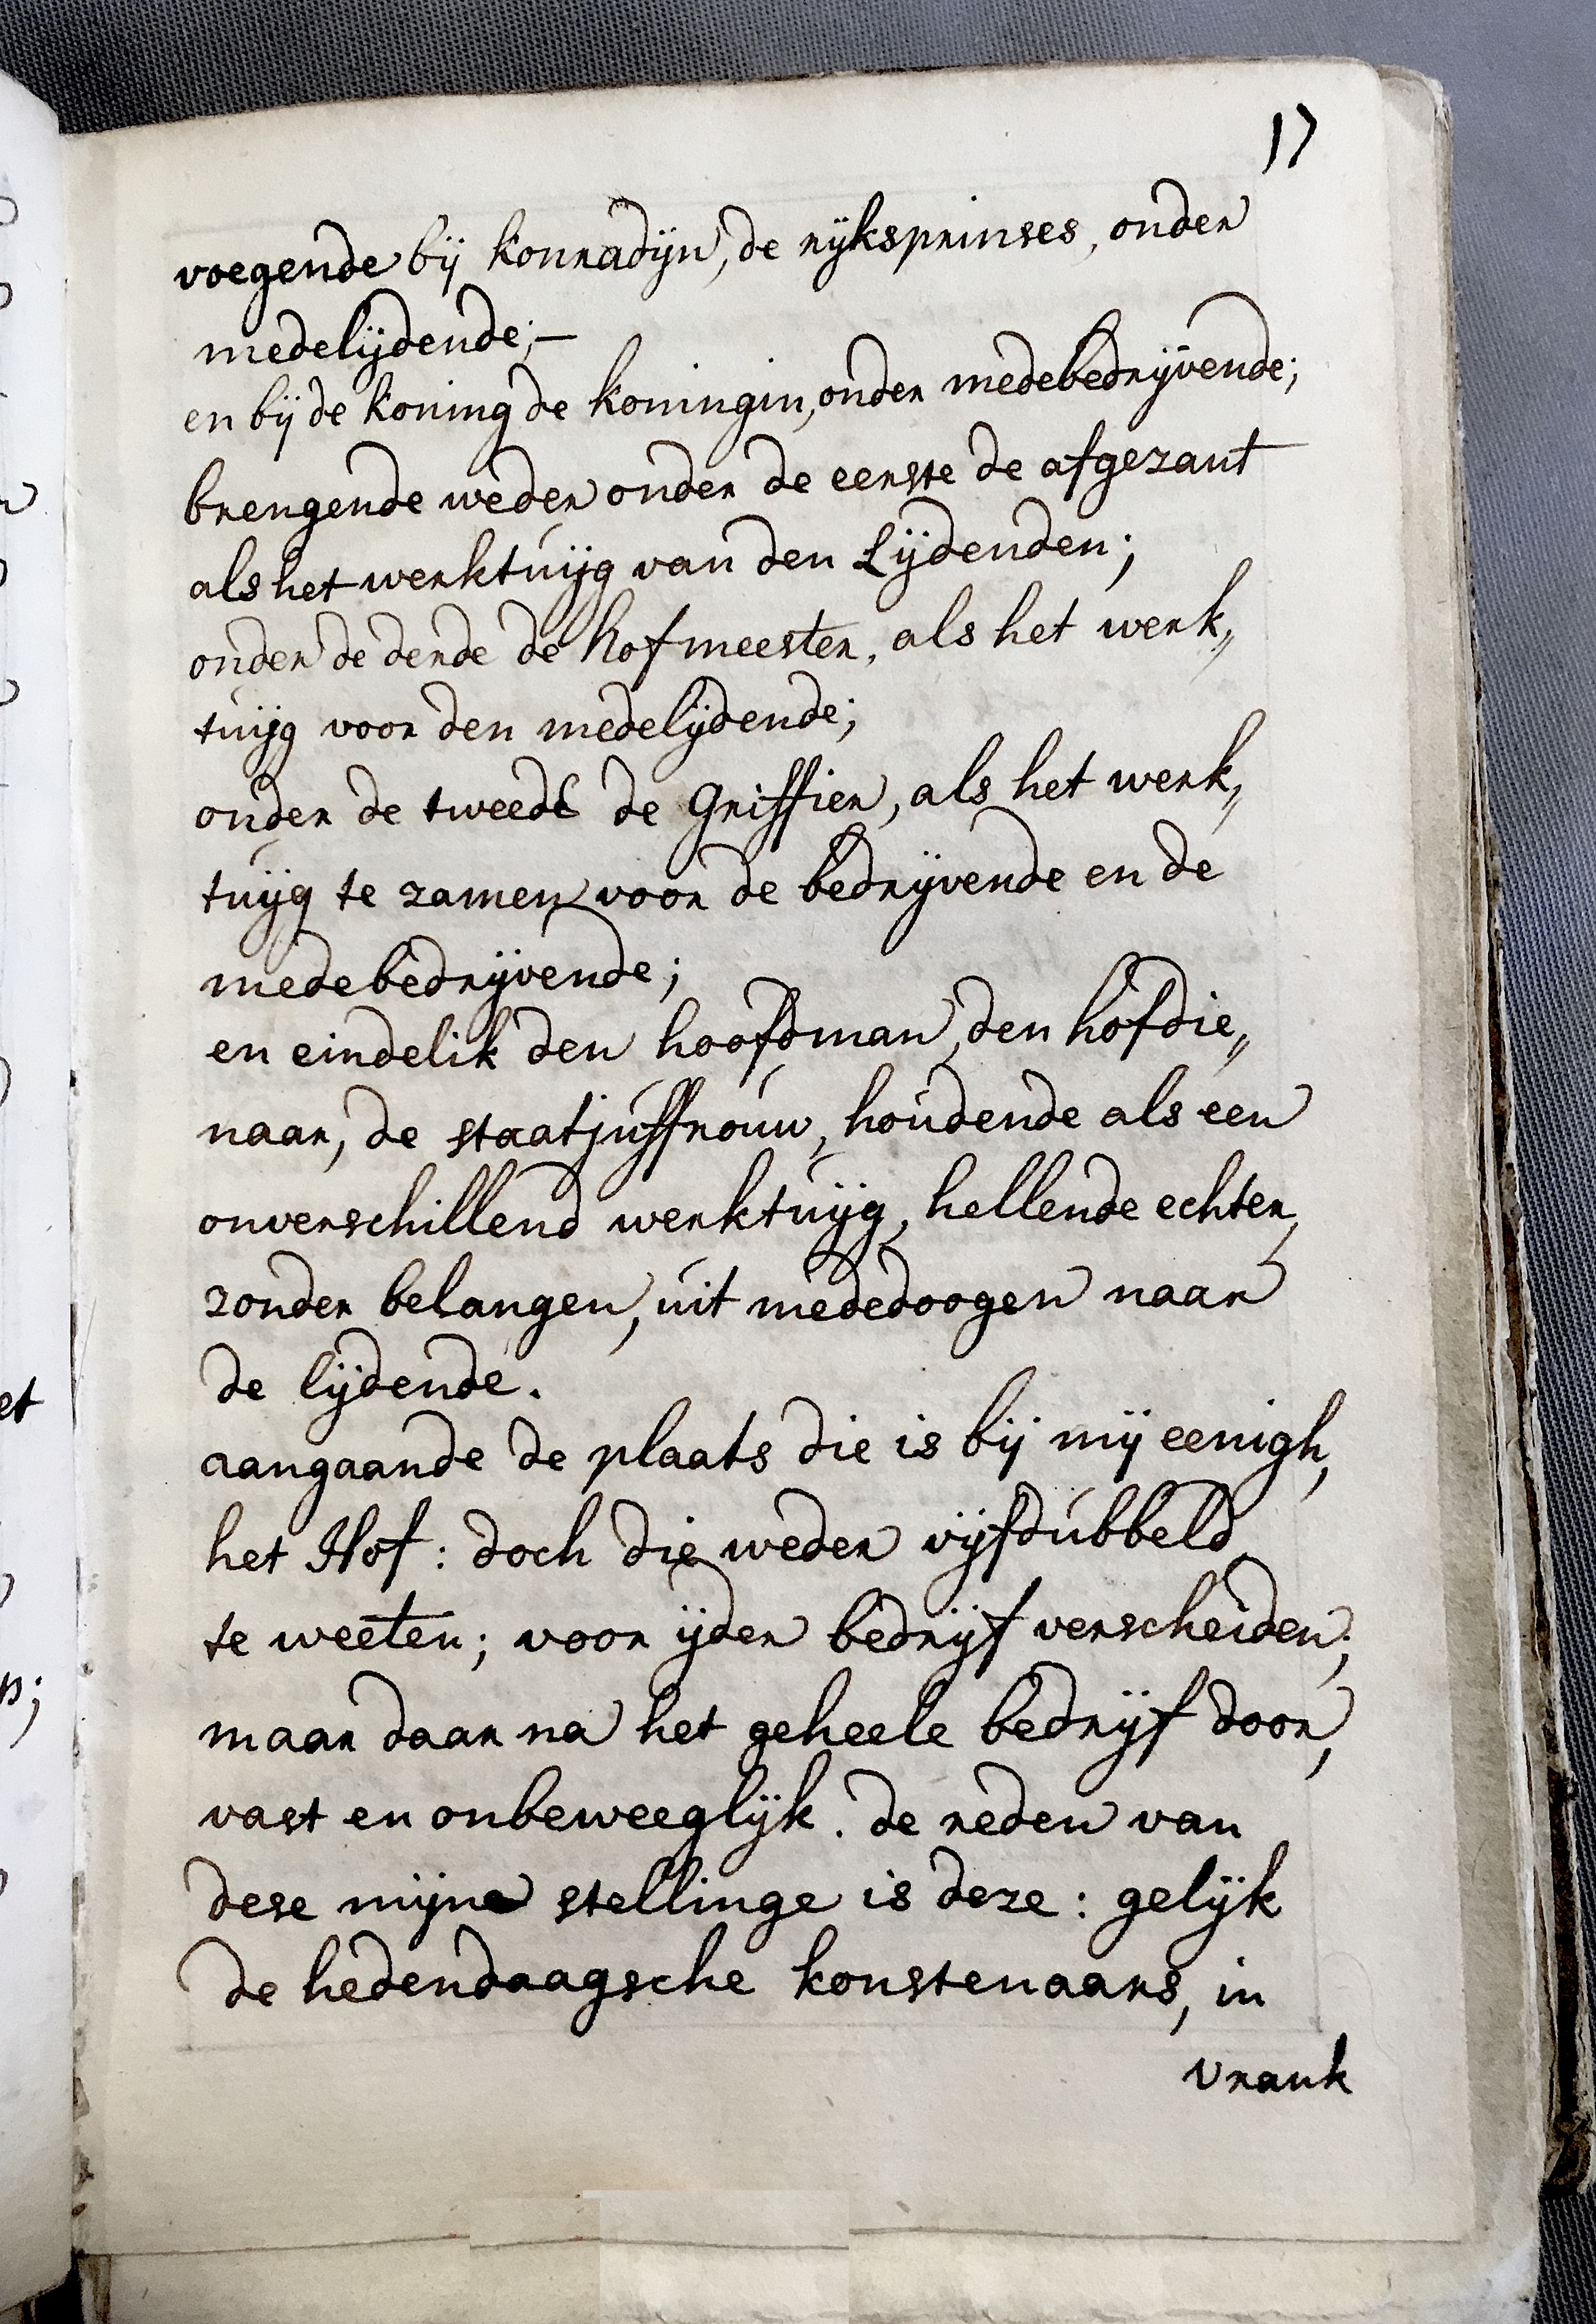 17
voegende bij konradijn, de rijksprinses, onder
medelijdende;—
en bij de koning de koningin, onder medebedrijvende;
brengende weder onder de eerste de afgezant
als het werktuijg van den Lijdenden;
onder de derde de hofmeester, als het werk„
tuijg voor den medelijdende;
onder de tweede de Griffier, als het werk„
tuijg te zamen voor de bedrijvende en de
medebedrijvende;
en eindelik den hoofdman, den hofdie„
naar, de staatjuffrouw, houdende als een
onverschillend werktuijg, hellende echter,
zonder belangen, uit mededoogen naar
de lijdende.
aangaande de plaats die is bij mij eenigh,
het Hof: doch die weder vijfdubbeld
te weeten; voor ijder bedrijf verscheiden;
maar daar na het geheele bedrijf door,
vast en onbeweeglijk. de reden van
dese mijne stellinge is deze: gelijk
de hedendaagsche konstenaars, in
vrank
et